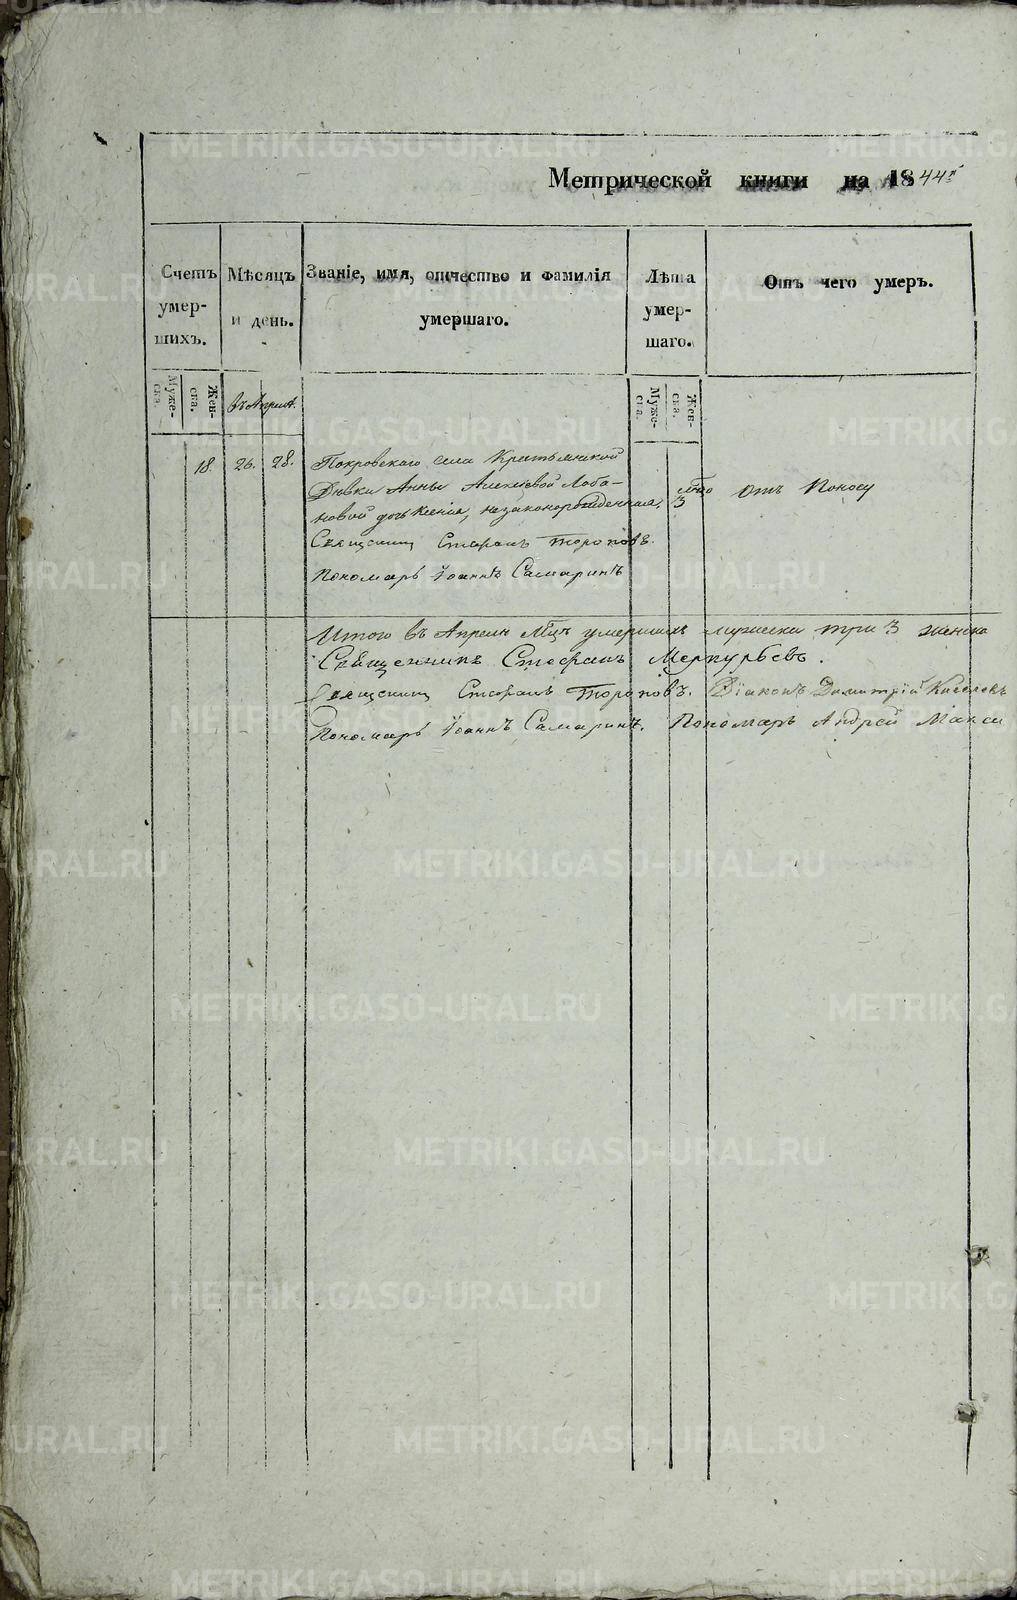 Метрической книги на 1844й
Счетъ умер- шихъ.
Мѣсяцъ и день.
Званіе, имя, отчество и фамилія умершаго.
Лѣта умер- шаго.
Отъ чего умеръ.
Муже- ска.
Жен- ска.
въ Апрелѣ.
Муже- ска.
Жен- ска.
18. 26. 28. Покровскаго села Крестьянской
Дѣвки Анны Алексѣевой Лоба-
новой дочь Ксенія, незаконорожденная, 3 отъ Поносу
Священникъ Стефанъ Тороповъ.
Пономарь Іоаннъ Самаринъ
Итого въ Апрелѣ Мцѣ умершихъ мужеска три 3 женска
Священникъ Стефанъ Меркурьевъ.
Священникъ Стефанъ Тороповъ. Діаконъ Димитрій Киселевъ
Пономарь Іоаннъ Самаринъ. Пономарь Андрей Макси
METRIKI.GASO-URAL.RU